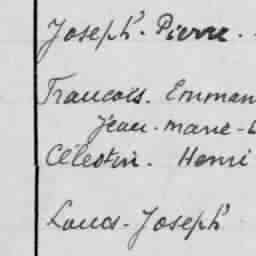 Joseph. Pierre.
Francois. Emman
Jean-marie-L
Célestin. Henri
Louis-Joseph